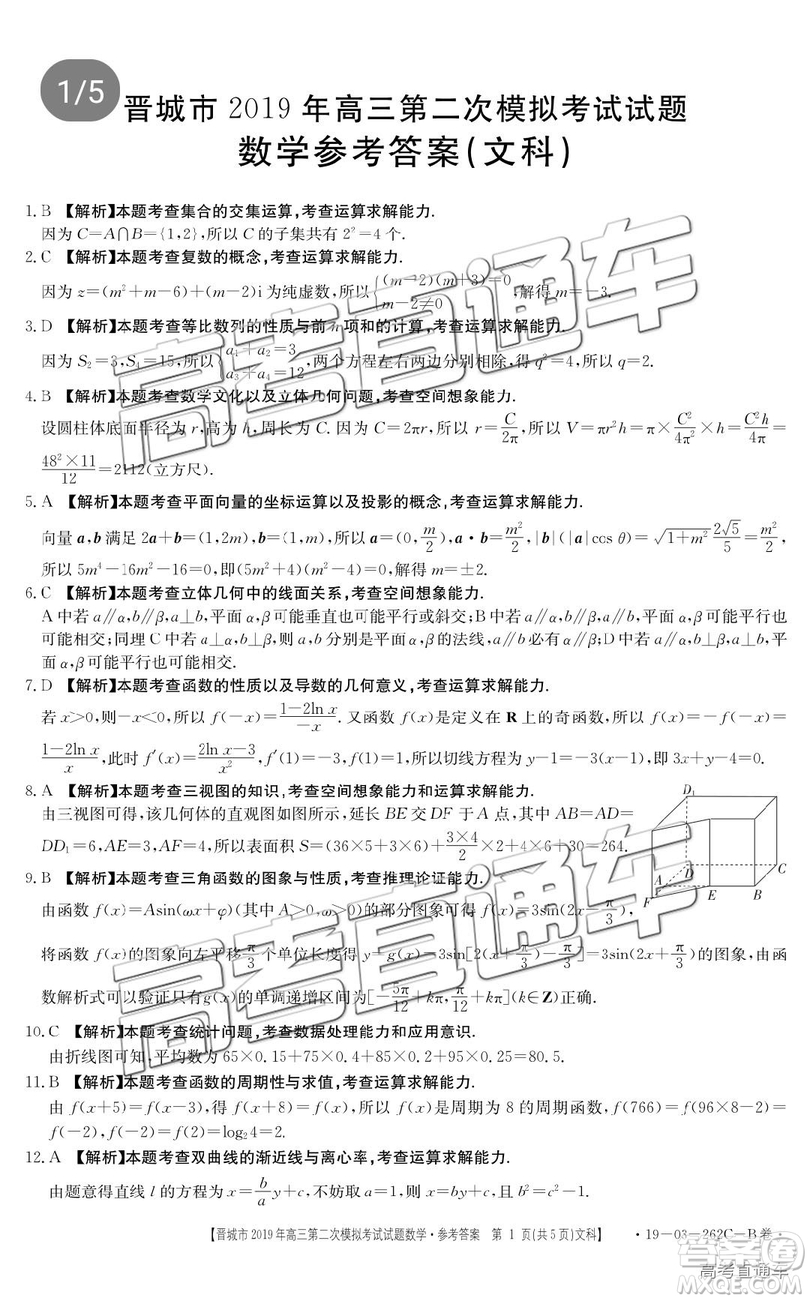 1/5
晋城市 2019 年高三第二次模拟考试试题
数学参考答案(文科)
1. B 【解析】本题考查集合的交集运算,考查运算求解能力.
因为 C=A∩B={1,2},所以 C 的子集共有 2²=4 个.
2. C 【解析】本题考查复数的概念,考查运算求解能力.
因为 z=(m²+m-6)+(m-2)i 为纯虚数,所以{(m-2)(m+3)=0, m-2≠0 ,解得 m=-3.
3. D 【解析】本题考查等比数列的性质与前 n 项和的计算,考查运算求解能力.
因为 S₂=3,S₄=15,所以{a₁+a₂=3 a₃+a₄=12,两个方程左右两边分别相除,得 q²=4,所以 q=2.
4. B 【解析】本题考查数学文化以及立体几何问题,考查空间想象能力.
设圆柱体底面半径为 r,高为 h,周长为 C. 因为 C=2πr,所以 r=C/2π,所以 V=πr²h=π×C²/4π²×h=C²h/4π=
48²×11/12=2112(立方尺).
5. A 【解析】本题考查平面向量的坐标运算以及投影的概念,考查运算求解能力.
向量 a,b 满足 2a+b=(1,2m),b=(1,m),所以 a=(0,m/2),a·b=m²/2,|b|(|a|cos θ)=√(1+m²) 2√5/5=m²/2,
所以 5m⁴-16m²-16=0,即(5m²+4)(m²-4)=0,解得 m=±2.
6. C 【解析】本题考查立体几何中的线面关系,考查空间想象能力.
A 中若 a∥α,b∥β,a⊥b,平面 α,β 可能垂直也可能平行或斜交;B 中若 a∥α,b∥β,a∥b,平面 α,β 可能平行也
可能相交;同理 C 中若 a⊥α,b⊥β,则 a,b 分别是平面 α,β 的法线,a∥b 必有 α∥β;D 中若 a∥α,b⊥β,a⊥b,平
面 α,β 可能平行也可能相交.
7. D 【解析】本题考查函数的性质以及导数的几何意义,考查运算求解能力.
若 x>0,则-x<0,所以 f(-x)=(1-2ln x)/(-x). 又函数 f(x)是定义在 R 上的奇函数,所以 f(x)=-f(-x)=
(1-2ln x)/x,此时 f′(x)=(2ln x-3)/x²,f′(1)=-3,f(1)=1,所以切线方程为 y-1=-3(x-1),即 3x+y-4=0.
8. A 【解析】本题考查三视图的知识,考查空间想象能力和运算求解能力.
由三视图可得,该几何体的直观图如图所示,延长 BE 交 DF 于 A 点,其中 AB=AD=
DD₁=6,AE=3,AF=4,所以表面积 S=(36×5+3×6)+3×4/2×6+30=264.
D₁
A
D
F
E
B
C
9. B 【解析】本题考查三角函数的图象与性质,考查推理论证能力.
由函数 f(x)=Asin(ωx+φ)(其中 A>0,ω>0)的部分图象可得 f(x)=3sin(2x-π/3),
将函数 f(x)的图象向左平移π/3个单位长度得 y=g(x)=3sin[2(x+π/3)-π/3]=3sin(2x+π/3)的图象,由函
数解析式可以验证只有g(x)的单调递增区间为[-5π/12+kπ,π/12+kπ](k∈Z)正确.
10. C 【解析】本题考查统计问题,考查数据处理能力和应用意识.
由折线图可知,平均数为 65×0.15+75×0.4+85×0.2+95×0.25=80.5.
11. B 【解析】本题考查函数的周期性与求值,考查运算求解能力.
由 f(x+5)=f(x-3),得 f(x+8)=f(x),所以 f(x)是周期为 8 的周期函数,f(766)=f(96×8-2)=
f(-2),f(-2)=f(2)=log₂4=2.
12. A 【解析】本题考查双曲线的渐近线与离心率,考查运算求解能力.
由题意得直线 l 的方程为 x=b/a y+c,不妨取 a=1,则 x=by+c,且 b²=c²-1.
【晋城市 2019 年高三第二次模拟考试试题数学·参考答案 第 1 页(共 5 页)文科】 ·19-03-262C-B卷·
高考直通车
高考直通车
高考直通车